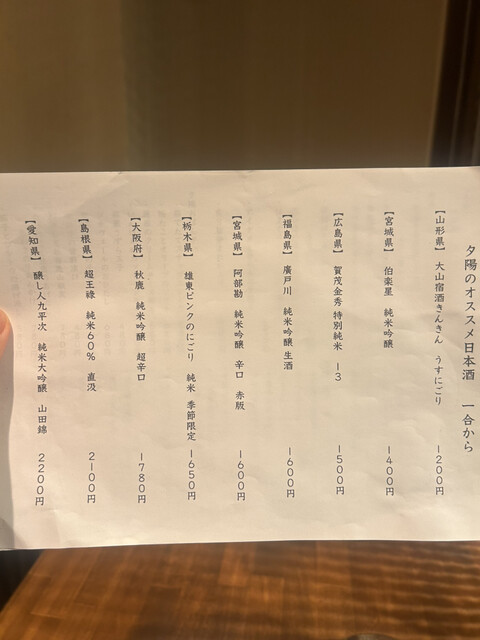 夕陽のオススメ日本酒 一合から
【山形県】 大山宿酒きんきん うすにごり 1200円
【宮城県】 伯楽星 純米吟醸 1400円
【広島県】 賀茂金秀 特別純米 13 1500円
【福島県】 廣戸川 純米吟醸 生酒 1600円
【宮城県】 阿部勘 純米吟醸 辛口 赤版 1600円
【栃木県】 雄東ピンクのにごり 純米 季節限定 1650円
【大阪府】 秋鹿 純米吟醸 超辛口 1780円
【島根県】 超王祿 純米60% 直汲 2100円
【愛知県】 醸し人九平次 純米大吟醸 山田錦 2200円